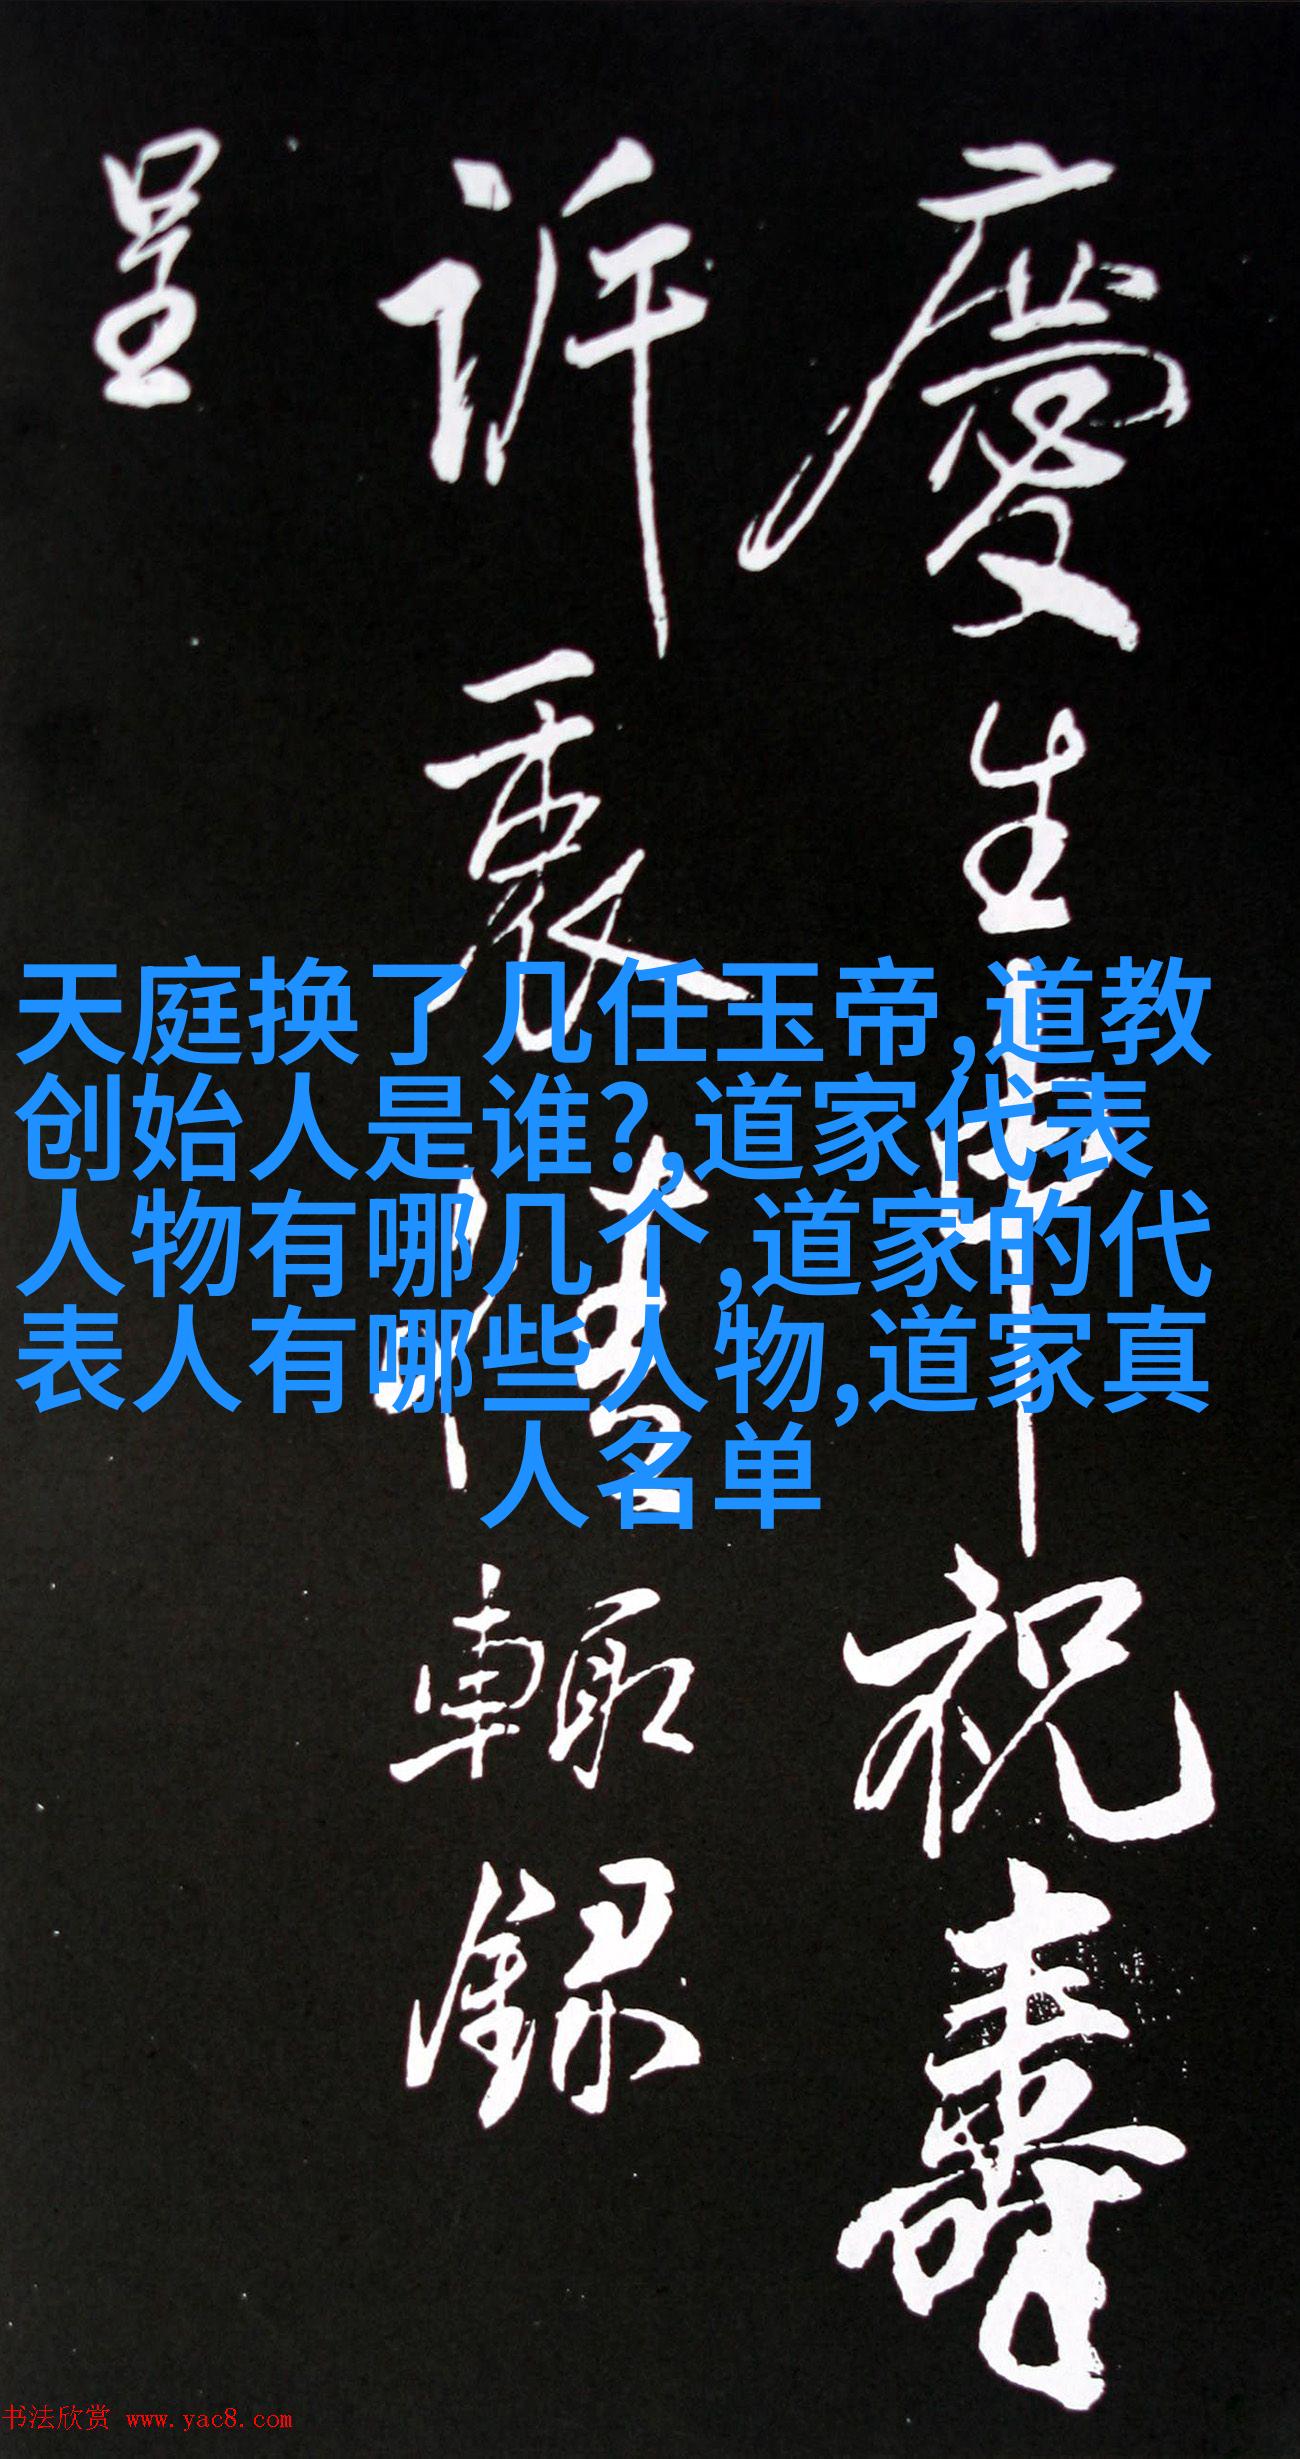 慶生申祝壽
訴衷情輙録
呈
天庭换了几任玉帝,道教
创始人是谁?,道家代表
人物有哪几个,道家的代
表人有哪些人物,道家真
人名单
书法欣赏 www.yac8.com